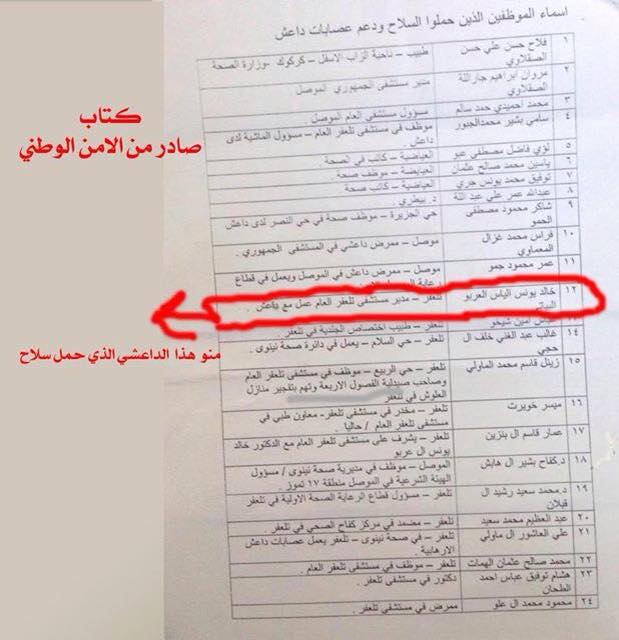 اسماء الموظفين الذين حملوا السلاح ودعم عصابات داعش
كتاب
صادر من الامن الوطني
منو هذا الداعشي الذي حمل سلاح
١ فلاح حسن علي حسن طبيب – ناحية الزاب الاسفل – كركوك – وزارة الصحة
الصقلاوي
٢ مروان ابراهيم جارالله مدير مستشفى الجمهوري الموصل
الصقلاوي
٣ محمد احميدي حمد سالم مسؤول مستشفى العام الموصل
٤ سامي بشير محمدالجبور موظف في مستشفى تلعفر العام – مسؤول الماشية لدى
داعش .
٥ لؤي فاضل مصطفى عبو العياضية – كاتب في الصحة
٦ ياسين محمد صالح عثمان العياضية – موظف صحة .
٧ توفيق محمد يونس جري العياضية – كاتب صحة
٨ عبدالله عمر علي عبد الله د. بيطري .
٩ شاكر محمود مصطفى حي الجزيرة – موظف صحة في حي النصر لدى داعش
الحمو
١٠ فراس محمد غزال موصل – ممرض داعشي في المستشفى الجمهوري .
المعماوي
١١ عمر محمود جمو موصل – ممرض داعش في الموصل ويعمل في قطاع
رعاية
١٢ خالد يونس الياس العربو تلعفر – مدير مستشفى تلعفر العام عمل مع داعش .
عباس امين شيخو تلعفر – طبيب اختصاص الجلدية في تلعفر
١٤ غالب عبد الغني خلف ال تلعفر – حي السلام – يعمل في دائرة صحة نينوى .
حجي
١٥ زينل قاسم محمد الماولي تلعفر – حي الربيع – موظف في مستشفى تلعفر العام
وصاحب صيدلية الفصول الاربعة وتهم بتفجير منازل
العلوش في تلعفر
١٦ ميسر خويرت تلعفر – مخدر في مستشفى تلعفر- معاون طبي في
مستشفى تلعفر العام / حاليا .
١٧ عمار قاسم ال بنزين تلعفر – يشرف على مستشفى تلعفر العام مع الدكتور خالد
يونس ال عربو
١٨ د.كفاح بشير ال هابش الموصل – موظف في مديرية صحة نينوى / مسؤول
الهيئة الشرعية في الموصل منطقة ١٧ تموز .
١٩ د.محمد سعيد رشيد ال تلعفر – مسؤول قطاع الرعاية الصحة الاولية في تلعفر
قبلان
٢٠ عبد العظيم محمد سعيد تلعفر – مضمد في مركز كفاح الصحي في تلعفر
٢١ علي العاشور ال ماولي تلعفر – في صحة نينوى – تلعفر يعمل عصابات داعش
الارهابية .
٢٢ محمد صالح عثمان الهمات تلعفر – موظف في مستشفى تلعفر العام .
٢٣ هشام توفيق عباس احمد دكتور في مستشفى تلعفر .
الطحان
٢٤ محمود محمد ال علو ممرض في مستشفى تلعفر .